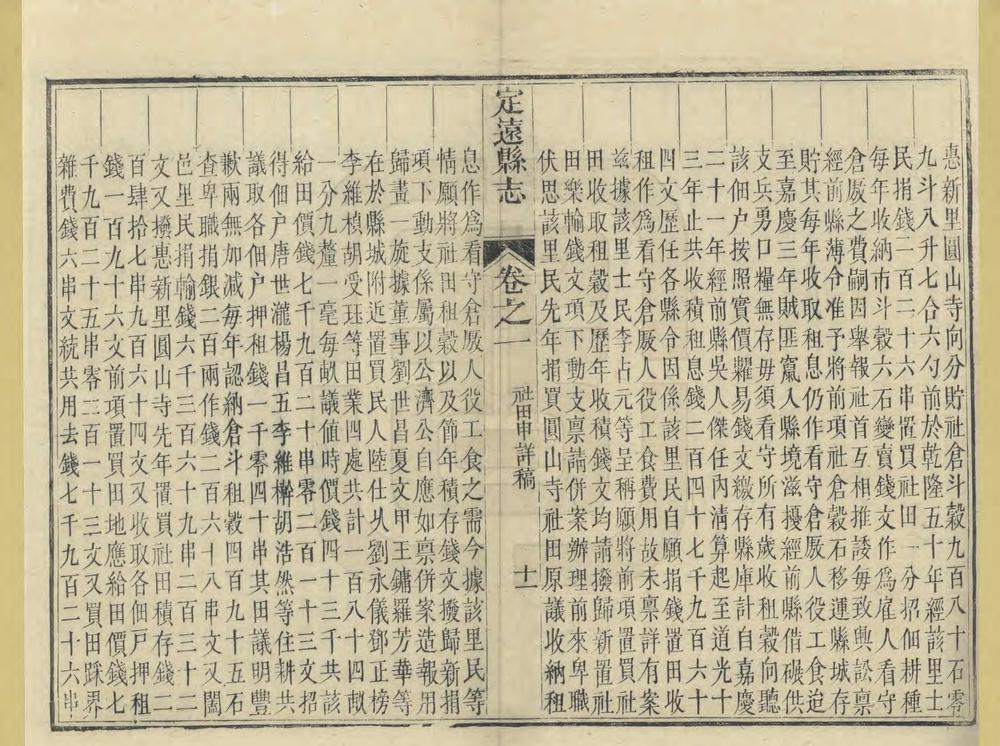 惠新里圓山寺向分貯社倉斗穀九百八十石零
九斗八升七合六勺前於乾隆五十年經該里士
民捐錢二百二十六串置買社田一分招佃耕種
每年收納市斗穀六石變賣錢文作為雇人看守
倉廒之費嗣因舉報社首互相推諉每致輿訟稟
經前縣薄令准予將前項社倉穀石移運縣城存
貯其每年收取租息仍作看守倉廒人役工食迨
至嘉慶三年賊匪竄入縣境滋擾經前縣借碾供
支兵勇口糧無存毋須看守所有歲收租穀向聽
該佃户按照實價糶易錢文繳存縣庫計自嘉慶
二十一年經前縣吳人傑任內清算起至道光十
三年止共收積租息錢二百四十七千九百六十
四文歷任各縣令因係該里民自願捐錢置田收
租作為看守倉廒人役工食費用故未稟詳有案
茲據該里士民李占元等呈稱願將前項置買社
田收取租穀及歷年收積錢文均請撥歸新置社
田樂輸錢文項下動支稟請併案辦理前來卑職
伏思該里民先年捐買圓山寺社田原議收納租
定遠縣志
卷之一
社田申詳稿
十一
息作為看守倉廒人役工食之需今據該里民等
情願將社田租穀以及節年積存錢文撥歸新捐
項下動支係屬以公濟公自應如稟併案造報用
歸畫一旋據董事劉世昌夏文甲王鏞羅芳華等
在於縣城附近置買民人陸仕乆劉永儀鄧正榜
李維楨胡受珏等田業四處共計一百八十四畝
一分九釐一毫每畝議值時價錢四十三千共該
給田價錢七千九百二十串零二百一十三文招
得佃户唐世瀧楊昌五李維檊胡浩然等住耕共
議取各佃户押租錢一千零四十串其田議明豐
歉兩無加減每年認納倉斗租穀四百九十五石
查卑職捐銀二百兩作錢二百六十八串文又闔
邑里民捐輸錢六千三百六十九串二百三十二
文又撥惠新里圓山寺先年置買社田積存錢二
百肆拾七串九百六十四文又收取各佃戸押租
錢一百九十六文前項置買田地應給田價錢七
千九百二十五串零二百一十三文又買田踩界
雜費錢六串文統共用去錢七千九百二十六串